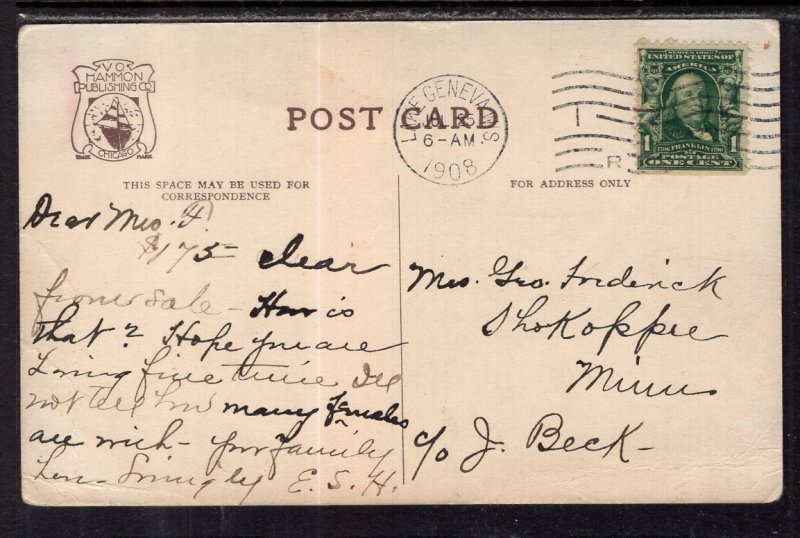 V O
HAMMON
PUBLISHING CO
TRADE CHICAGO MARK
POST CARD
LAKE GENEVA WIS
25
6-AM.
1908
SERIES 1902
UNITED STATES OF
AMERICA
1 FRANKLIN 1
POSTAGE
ONE CENT
R
THIS SPACE MAY BE USED FOR
CORRESPONDENCE
FOR ADDRESS ONLY
Dear Mrs. F.
$175 clear
from sale - How is
that? Hope you are
having fine time I'll
not tell how many females
are with - your family
here - E. S. H.
Mrs. Geo. Frederick
Shokoppee
Minn
c/o J. Beck -